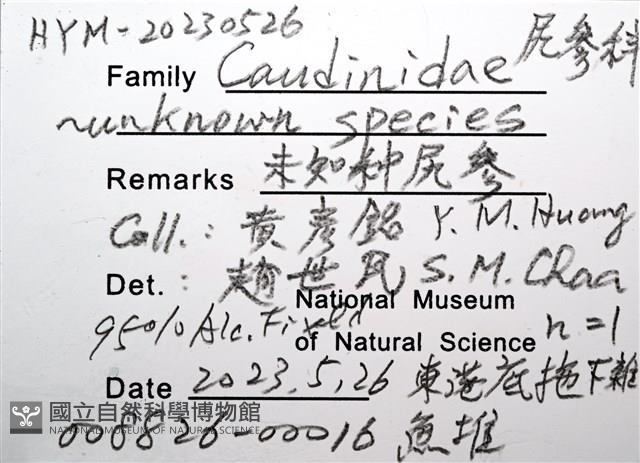 HYM-20230526
Family Caudinidae 尻參科
~unknown species
Remarks 未知种尻參
Coll.: 黃彥銘 Y. M. Huang
Det.: 趙世民 S. M. Chao
National Museum
95% Alc. Fixed
of Natural Science n=1
Date 2023.5.26 東港底拖下雜
國立自然科學博物館
NATIONAL MUSEUM OF NATURAL SCIENCE
008826-00016 魚堆